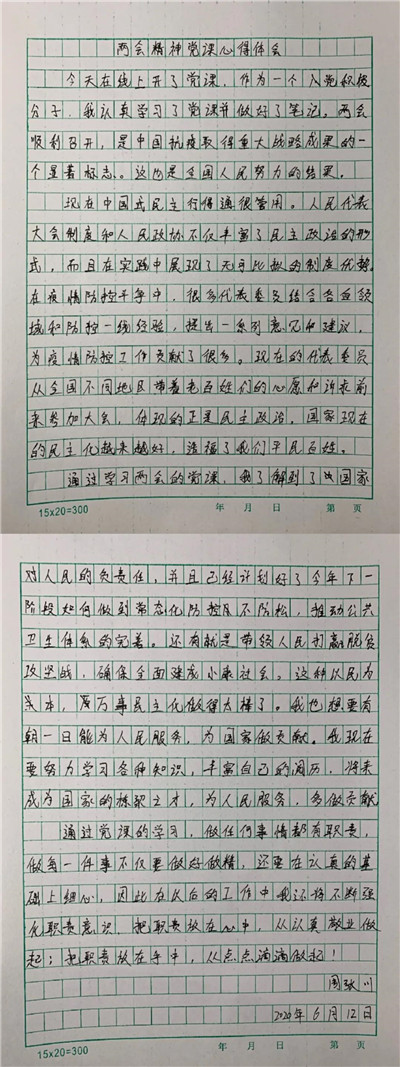 两会精神党课心得体会
今天在线上开了党课，作为一个入党积极
分子，我认真学习了党课并做好了笔记。两会
顺利召开，是中国抗疫取得重大战略成果的一
个显著标志。这也是全国人民努力的结果。
现在中国式民主行得通很管用。人民代表
大会制度和人民政协不仅丰富了民主政治的形
式，而且在实践中展现了无可比拟的制度优势。
在疫情防控斗争中，很多代表委员结合各自领
域和防控一线经验，提出一系列意见和建议，
为疫情防控工作贡献了很多。现在的代表委员
从全国不同地区带着老百姓们的心愿和诉求前
来参加大会，体现的正是民主政治。国家现在
的民主化越来越好，造福了我们平民百姓。
通过学习两会的党课，我了解到了国家
15x20=300 年 月 日 第 页
对人民的负责任，并且已经计划好了今年下一
阶段如何做到常态化防控及不防松，推动公共
卫生体系的完善。还有就是带领人民打赢脱贫
攻坚战，确保全面建成小康社会。这种以民为
本，万事民主化做得太棒了。我也想要有
朝一日能为人民服务，为国家做贡献。我现在
要努力学习各种知识，丰富自己的阅历，将来
成为国家的栋梁之才，为人民服务，多做贡献
通过党课的学习，做任何事情都有职责，
做每一件事不仅要做好做精，还要在认真的基
础上细心，因此在以后的工作中我还将不断强
化职责意识，把职责放在心中，从认真敬业做
起；把职责放在手中，从点点滴滴做起！
周张川
2020年6月12日
15x20=300 年 月 日 第 页